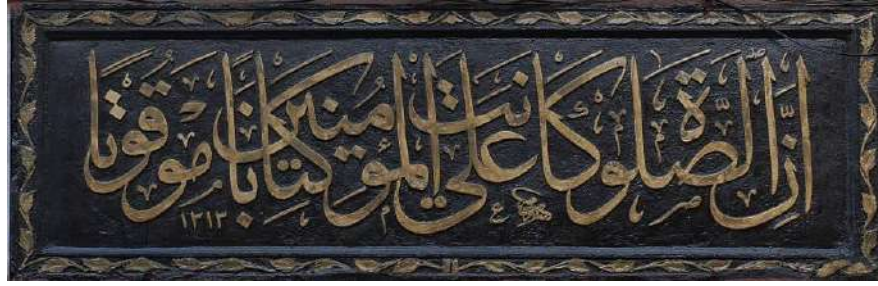 إن الصلوة كانت على المؤمنين كتابا موقوتا
١٣١٣